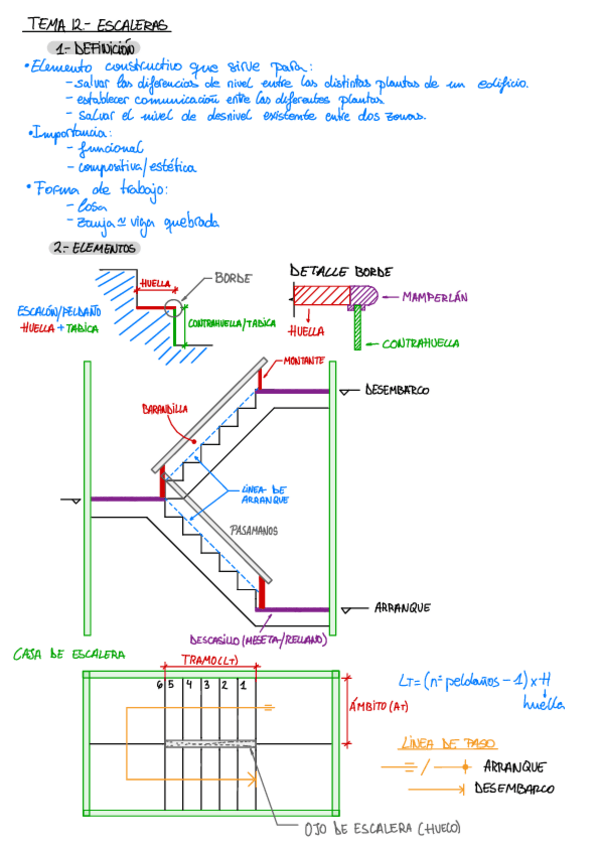 TEMA 12.- ESCALERAS
1.- DEFINICIÓN
• Elemento constructivo que sirve para:
- salvar las diferencias de nivel entre las distintas plantas de un edificio.
- establecer comunicación entre las diferentes plantas.
- salvar el nivel de desnivel existente entre dos zonas.
• Importancia:
- funcional
- compositiva/estética
• Forma de trabajo:
- losa
- zanja ≃ viga quebrada
2.- ELEMENTOS
HUELLA
BORDE
ESCALÓN/PELDAÑO
HUELLA + TABICA
CONTRAHUELLA/TABICA
DETALLE BORDE
MAMPERLÁN
HUELLA
CONTRAHUELLA
MONTANTE
DESEMBARCO
BARANDILLA
LÍNEA DE
ARRANQUE
PASAMANOS
ARRANQUE
DESCASILLO (MESETA/RELLANO)
CAJA DE ESCALERA
TRAMO (LT)
6 5 4 3 2 1
ÁMBITO (AT)
LT = (nº peldaños - 1) x H
huella
LÍNEA DE PASO
ARRANQUE
DESEMBARCO
OJO DE ESCALERA (HUECO)